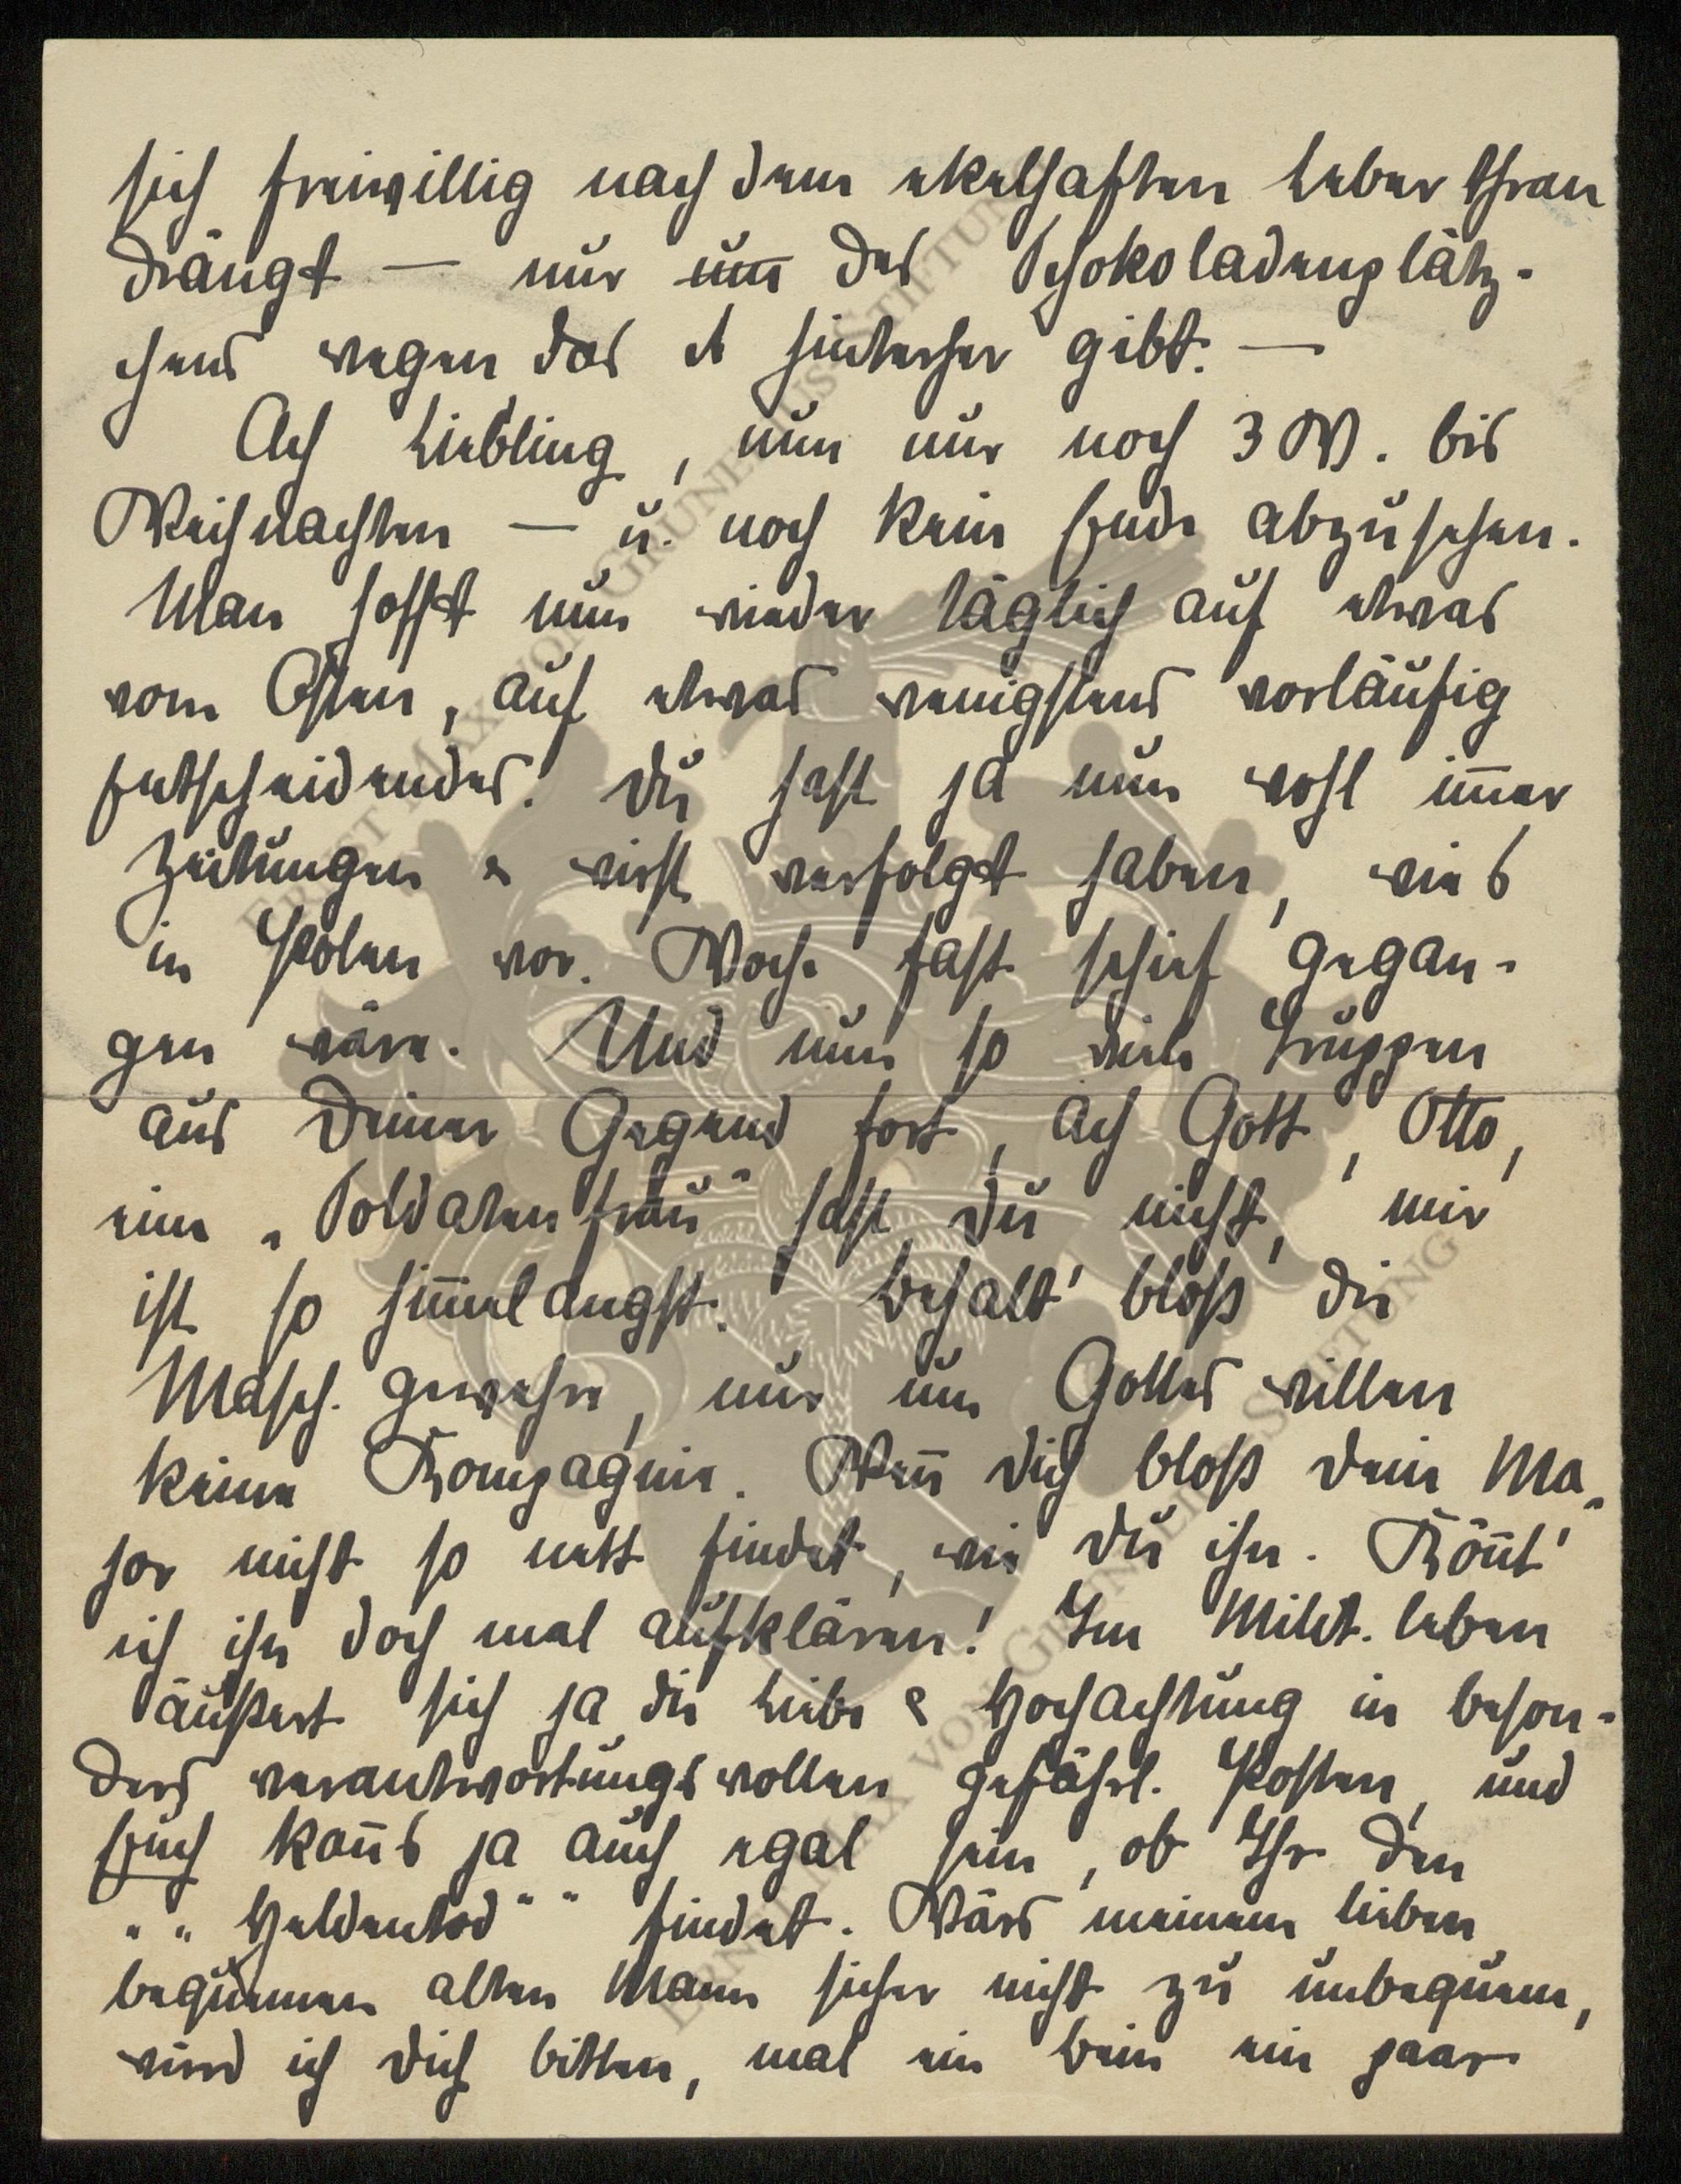 sich freiwillig nach dem ekelhaften Leberthran
drängt — nur um des Schokoladenplätz-
chens wegen das es hinterher gibt. —
Ach Liebling, nun nur noch 3 W. bis
Weihnachten — u. noch kein Ende abzusehen.
Man hofft nun wieder täglich auf etwas
vom Osten, auf etwas wenigstens vorläufig
Entscheidendes! Du hast ja nun wohl im̅er
Zeitungen & wirst verfolgt haben, wie's
in Polen vor. Woche fast schief gegan-
gen wäre. Und nun so viele Truppen
aus Deiner Gegend fort, ach Gott, Otto,
eine „Soldatenfrau" hast Du nicht, mir
ist so him̅elangst. Behalt' bloß die
Masch. gewehre, nur um Gottes willen
keine Kompagnie. Wen̅ Dich bloß Dein Ma-
jor nicht so nett findet, wie Du ihn. Kön̅t'
ich ihn doch mal aufklären! Im Milit. leben
äußert sich ja die Liebe & Hochachtung in beson-
ders verantwortungsvollen gefährl. Posten, und
Euch kan̅s ja auch egal sein, ob Ihr den
„ „ Heldentod " " findet. Wärs meinem lieben
bequemen alten Mann sicher nicht zu unbequem,
würd ich Dich bitten, mal ein Bein ein paar
ERNST MAX VON GRUNELIUS-STIFTUNG
ERNST MAX VON GRUNELIUS-STIFTUNG